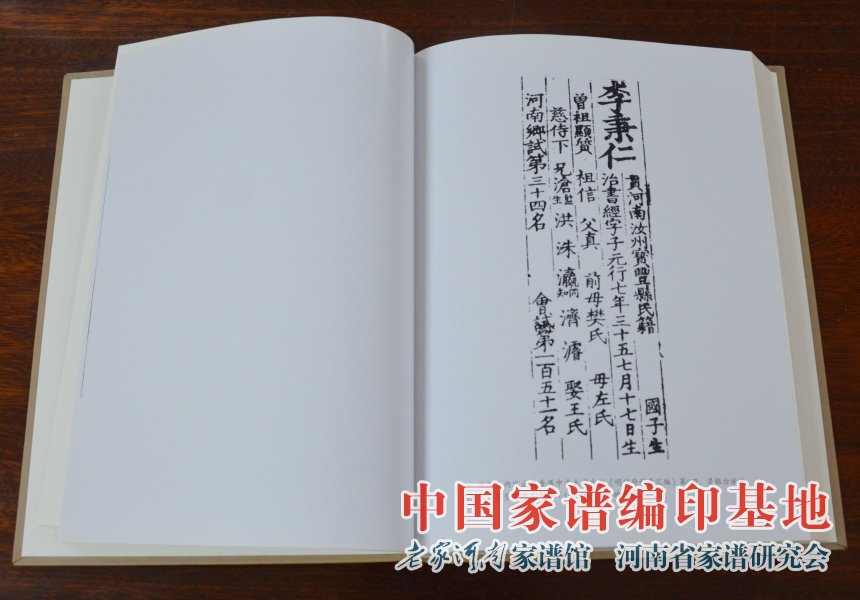 李秉仁
貫河南汝州寶豐縣民籍 國子生
治書經字子元行七年三十五七月十七日生
曾祖顯賛 祖信 父真 前母樊氏 母左氏
慈侍下 兄滄監生 洪 洙 瀛知 濟 濬 娶王氏
河南鄉試第三十四名 會試第一百五十一名
中国家谱编印基地
老家河南家谱馆 河南省家谱研究会